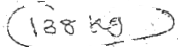 (138 kg)